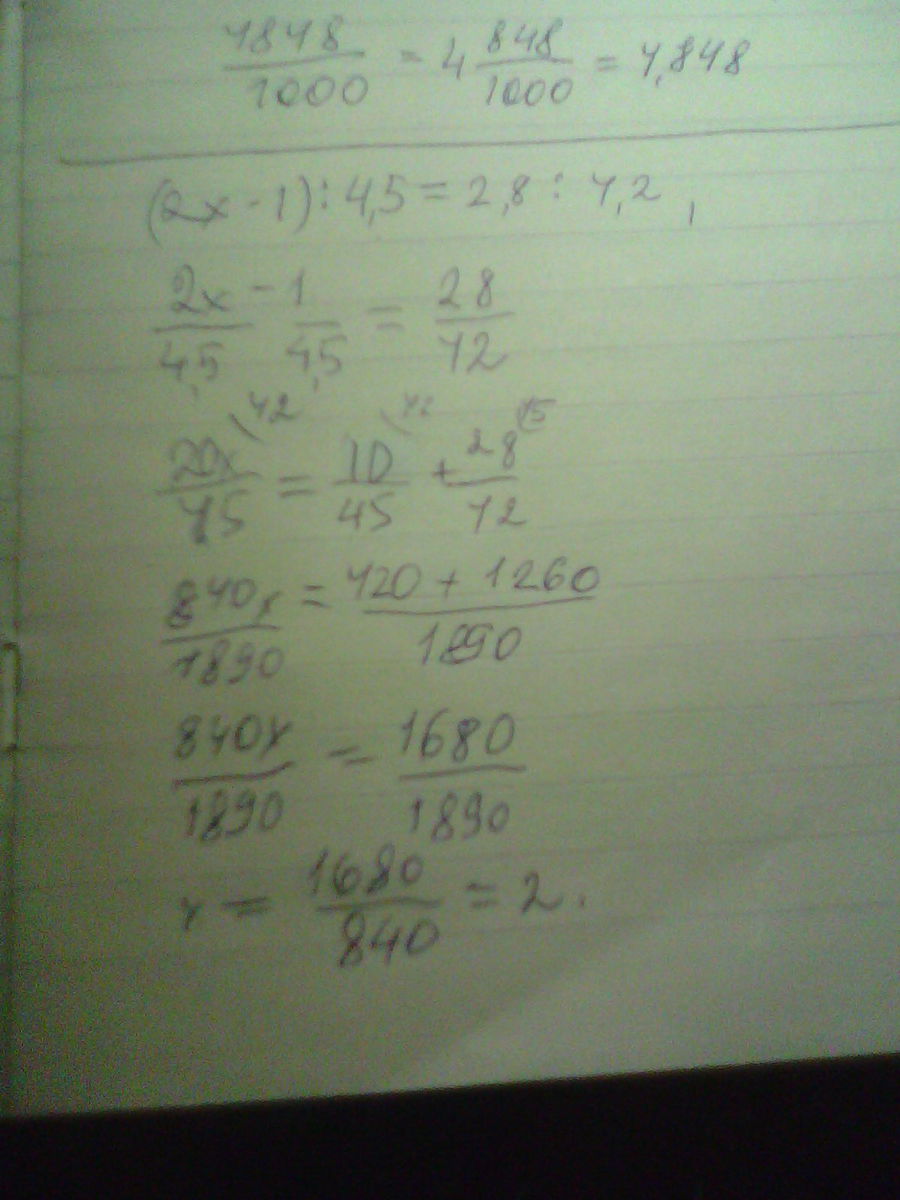 4848/1000 = 4 848/1000 = 4,848
(2x - 1) : 4,5 = 2,8 : 4,2,
2x/4,5 - 1/4,5 = 28/42
20x/45 (42 = 10/45 (42 + 28/42 (45
840x/1890 = 420 + 1260/1890
840x/1890 = 1680/1890
x = 1680/840 = 2.